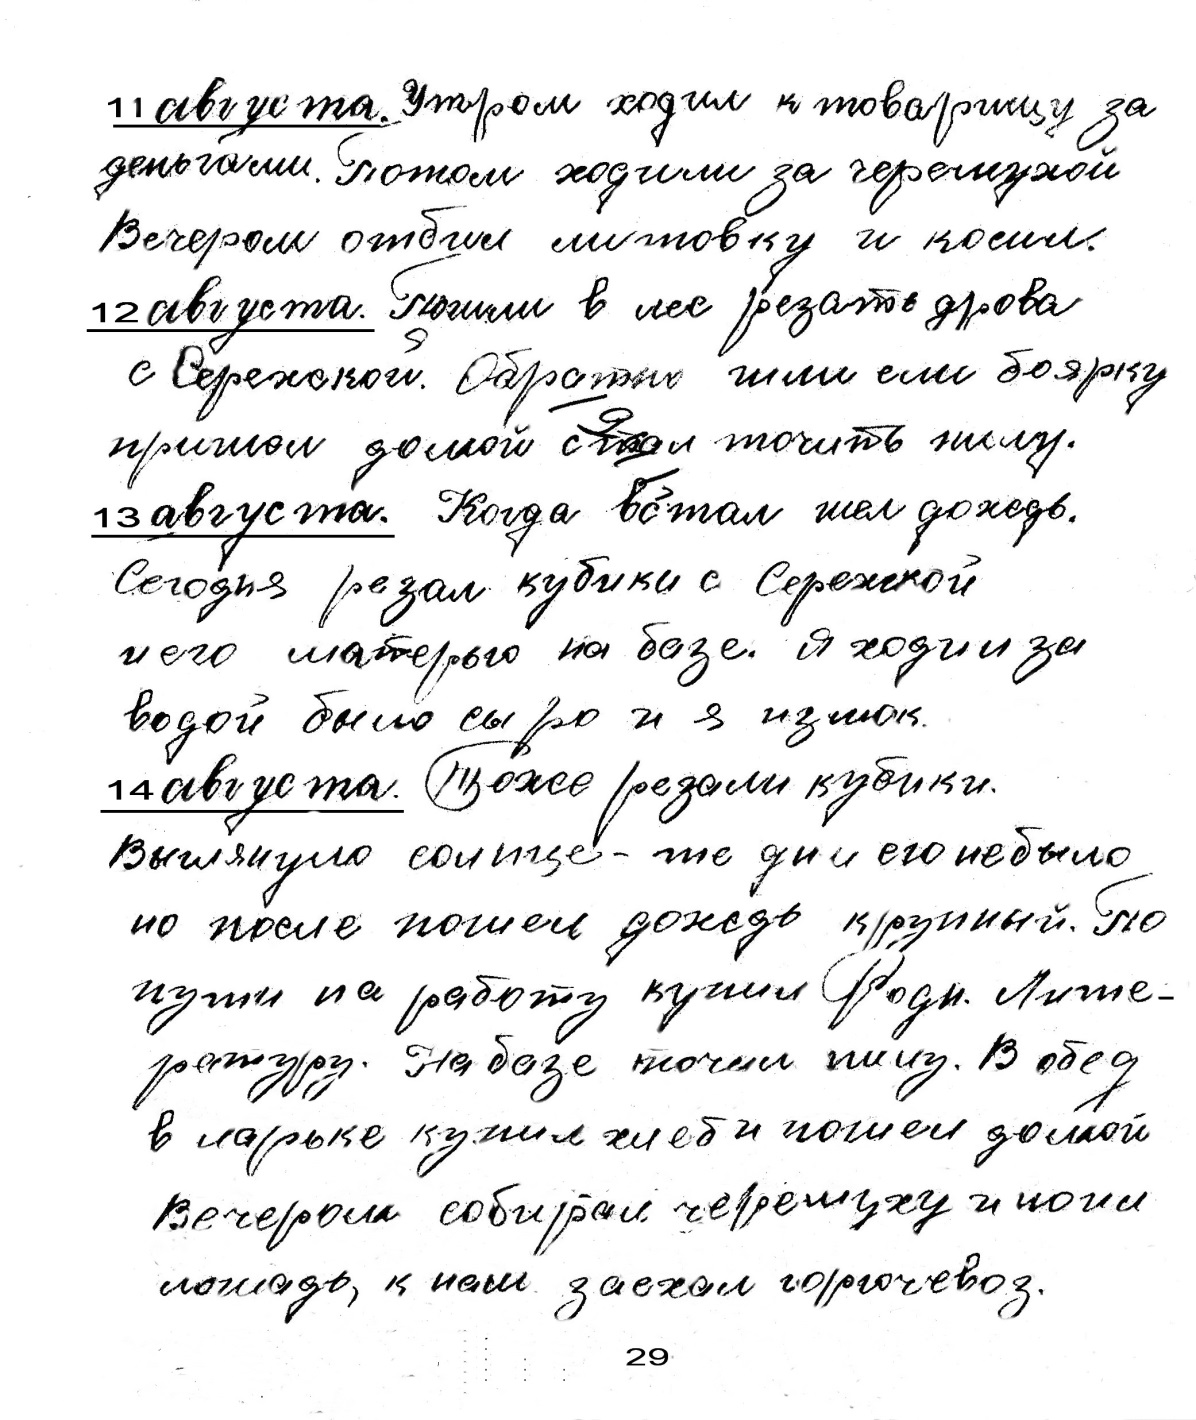 11 августа. Утром ходил к товарищу за
деньгами. Потом ходили за черемухой
Вечером отбил литовку и косил.
12 августа. Пошли в лес резать дрова
с Сережской. Обратно шли ели боярку
пришол домой стал точить пилу.
13 августа. Когда встал шел дождь.
Сегодня резал кубики с Сережкой
и его матерью на базе. Я ходил за
водой было сыро и я измок.
14 августа. Тоже резали кубики.
Выглянуло солнце - те дни его не было
но после пошел дождь крупный. По
пути на работу купил Родн. Лите-
ратуру. На базе точил пилу. В обед
в ларьке купил хлеб и пошел домой
Вечером собирал черемуху и поил
лошадь, к нам заехал горючевоз.
29